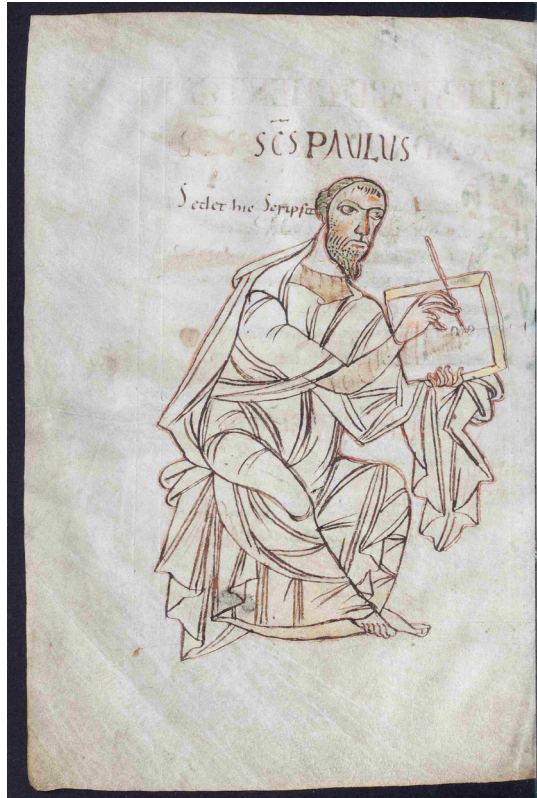 SC̄S PAULUS
Sedet hic Scripsit